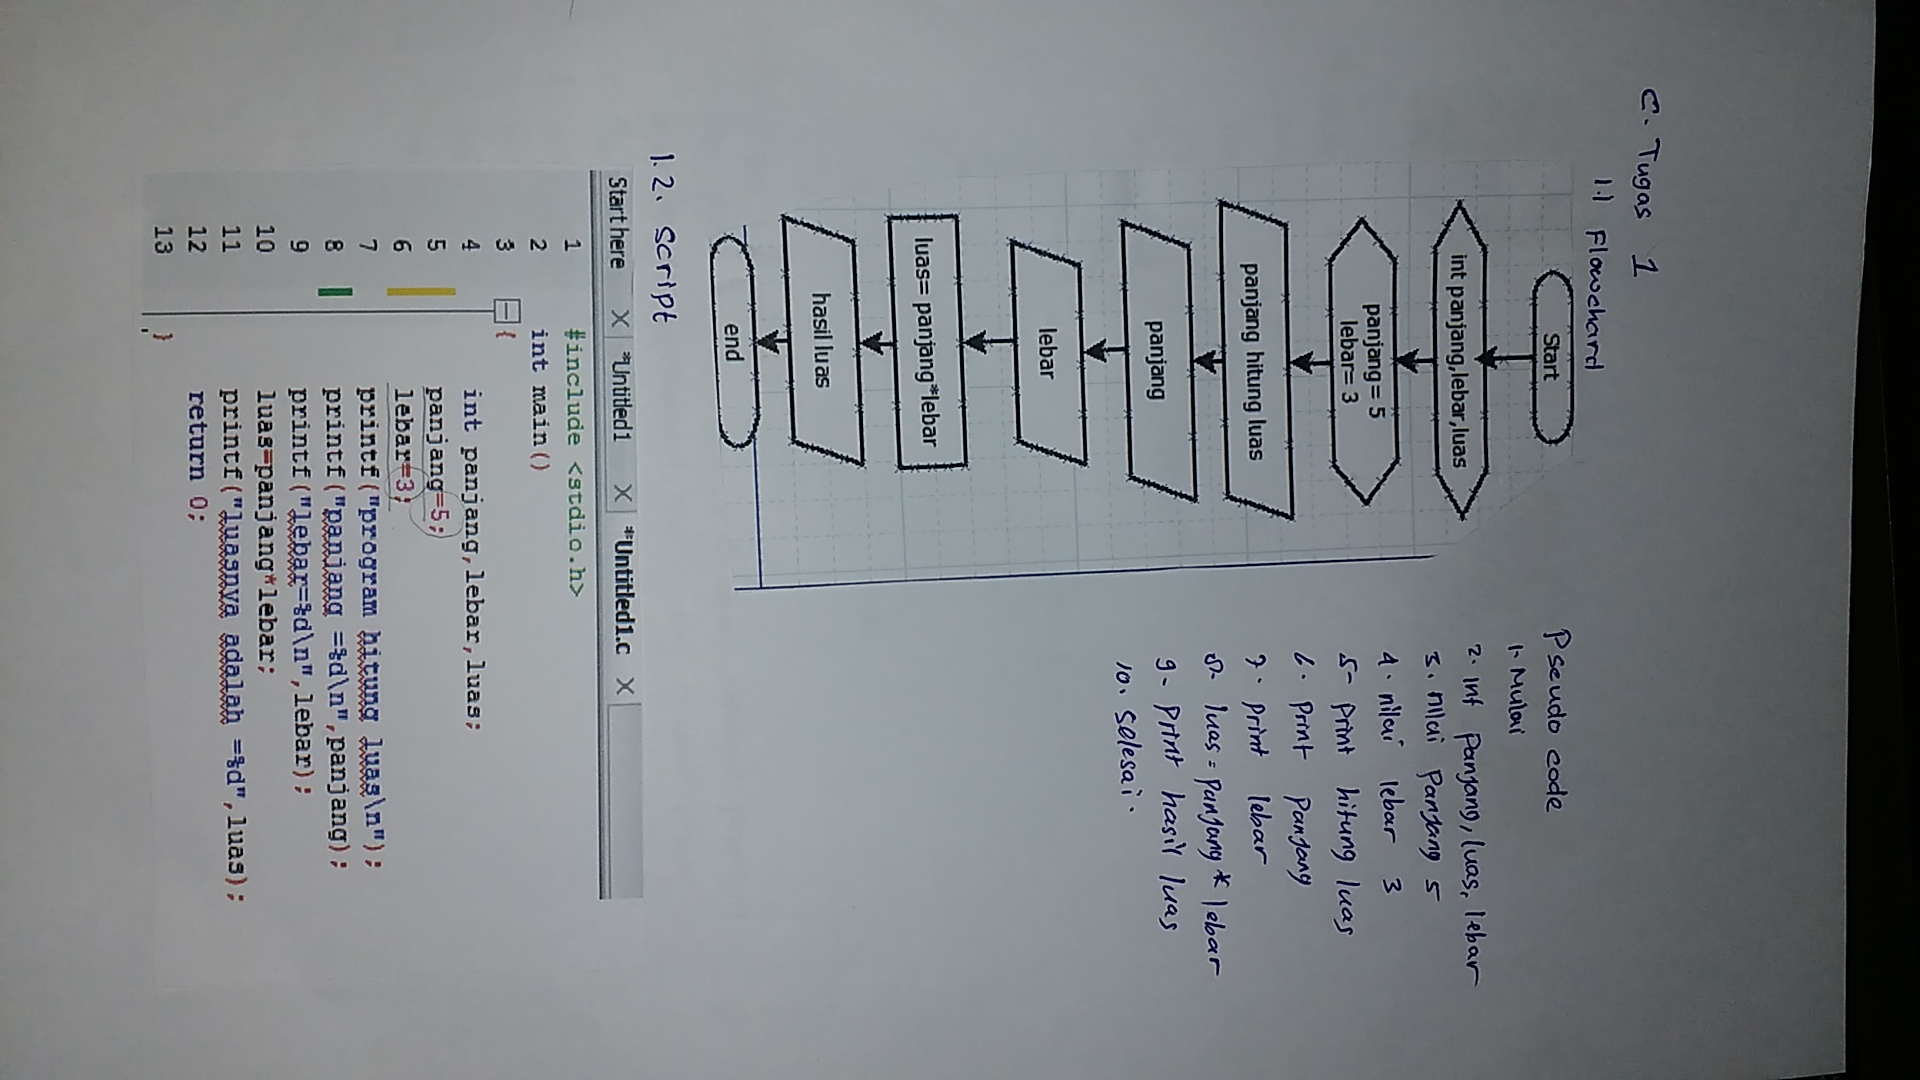 C. Tugas 1
1.1 Flowchard
Start
int panjang,lebar,luas
panjang = 5
lebar= 3
panjang hitung luas
panjang
lebar
luas= panjang*lebar
hasil luas
end
Pseudo code
1. Mulai
2. int Panjang, luas, lebar
3. nilai Panjang 5
4. nilai lebar 3
5- print hitung luas
6. print panjang
7. print lebar
8. luas = panjang * lebar
9. print hasil luas
10. Selesai.
1.2. Script
Start here X *Untitled1 X *Untitled1.c X
1 #include <stdio.h>
2 int main()
3 {
4 int panjang,lebar,luas;
5 panjang=5;
6 lebar=3;
7 printf("program hitung luas\n");
8 printf("panjang =%d\n",panjang);
9 printf("lebar=%d\n",lebar);
10 luas=panjang*lebar;
11 printf("luasnya adalah =%d",luas);
12 return 0;
13 }